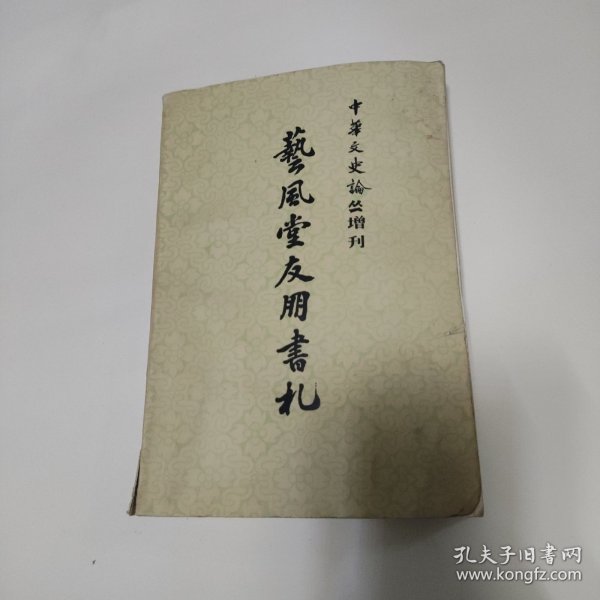 中華文史論丛增刊
藝風堂友朋書札
孔夫子旧書网
www.kongfz.com